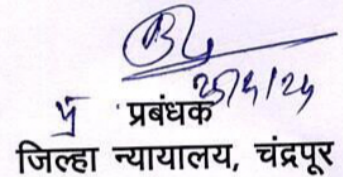 25/4/24
प्रबंधक
जिल्हा न्यायालय, चंद्रपूर